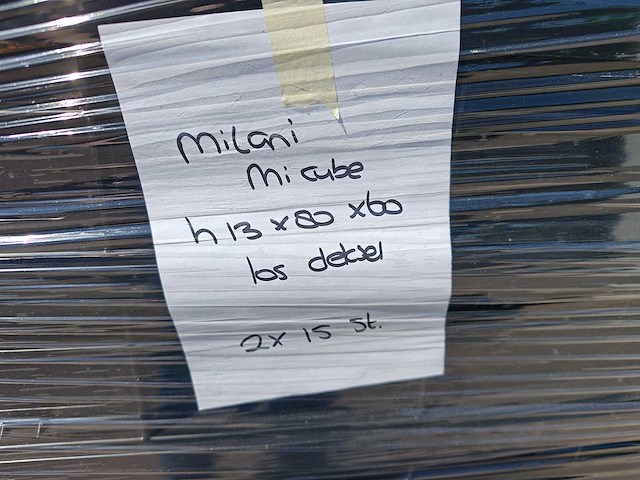 Milani
Mi cube
h 13 x 80 x 60
los deksel
2x 15 st.